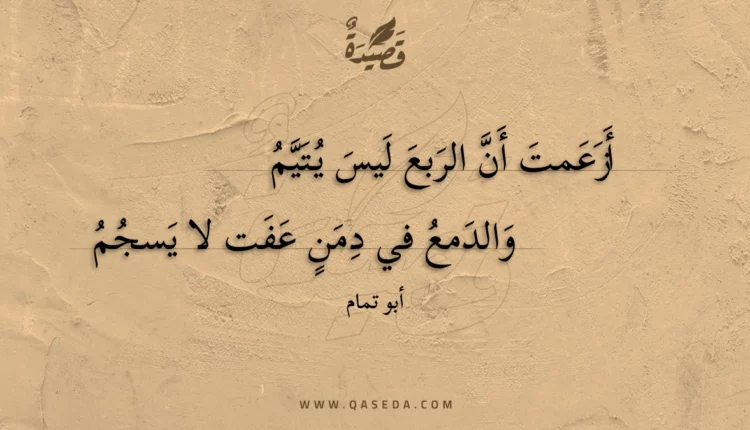 قَصِيدَةٌ
أَزَعَمتَ أَنَّ الرَبعَ لَيسَ يُتَيَّمُ
وَالدَمعُ في دِمَنٍ عَفَت لا يَسجُمُ
أبو تمام
WWW.QASEDA.COM